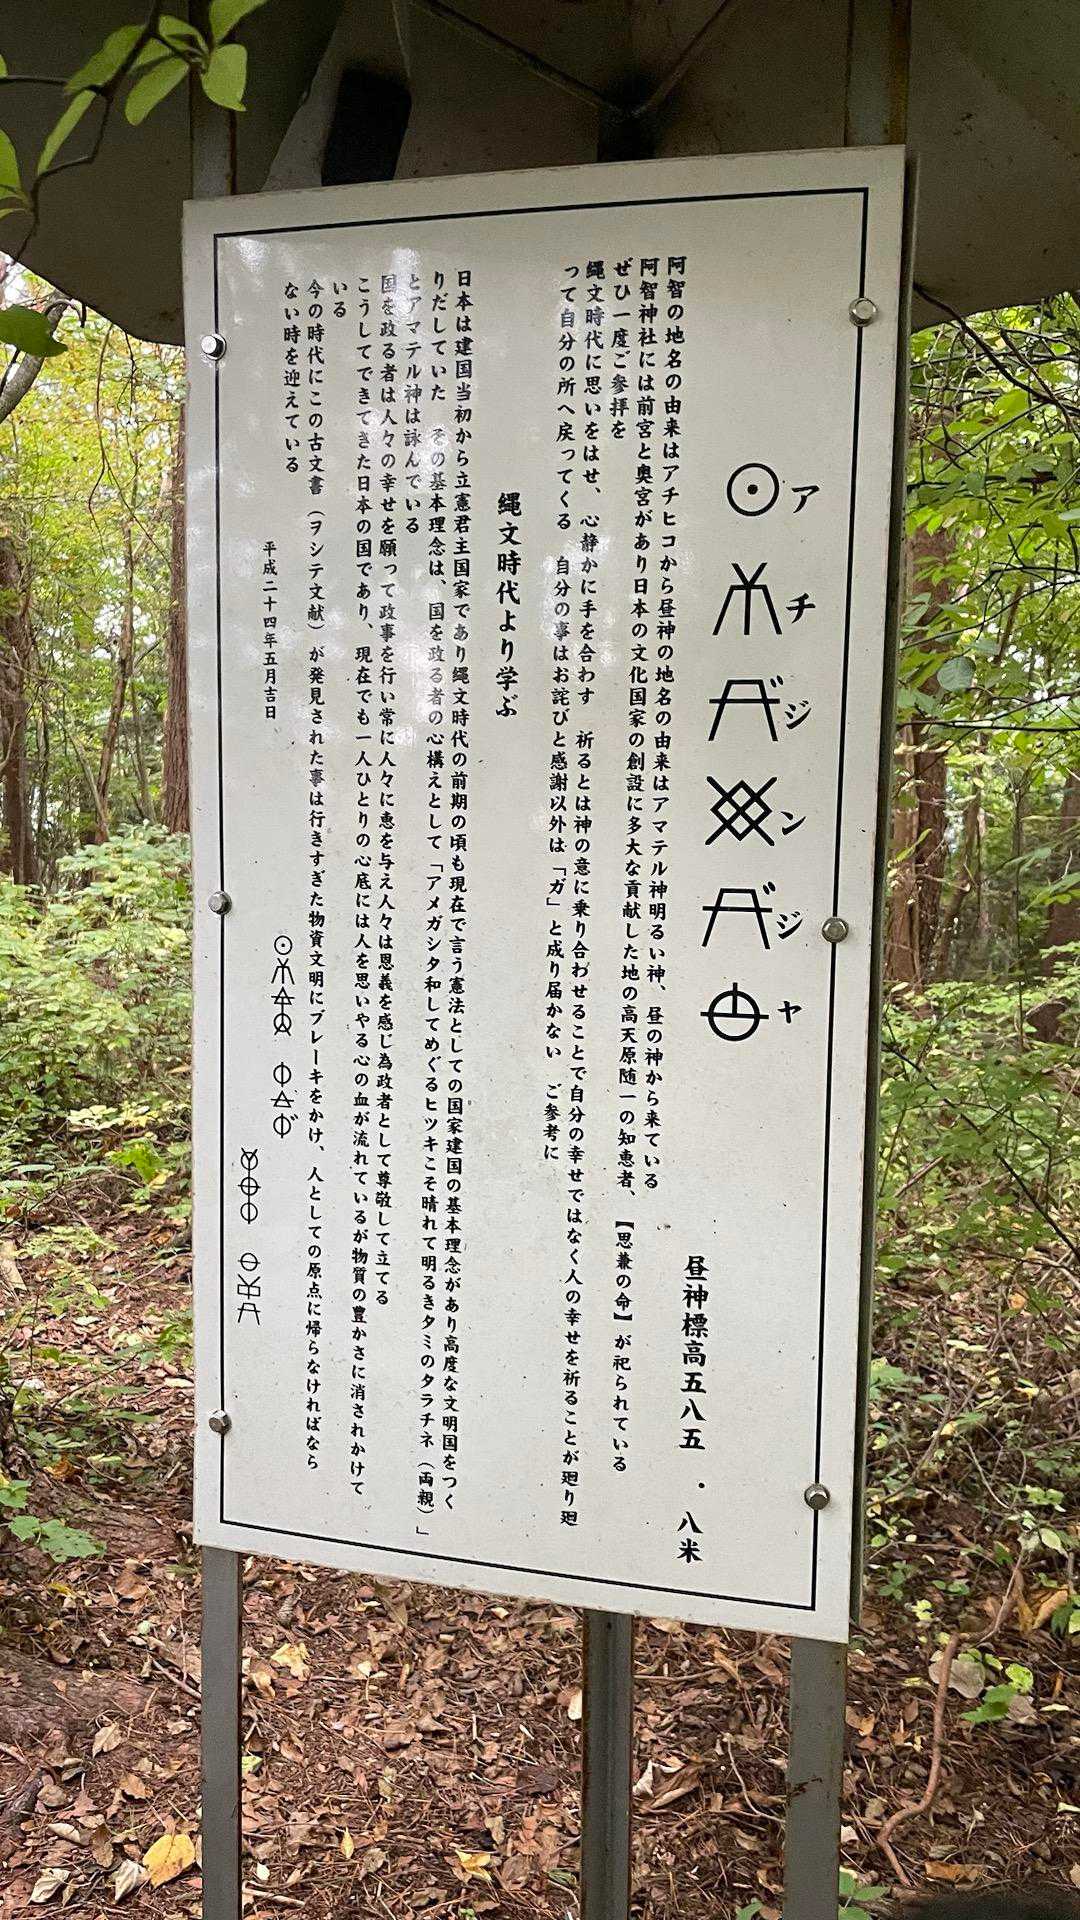 アチジンジヤ
昼神標高五八五．八米
阿智の地名の由来はアチヒコから昼神の地名の由来はアマテル神明るい神、昼の神から来ている
阿智神社には前宮と奥宮があり日本の文化国家の創設に多大な貢献した地の高天原随一の知恵者、【思兼の命】が祀られている
ぜひ一度ご参拝を
縄文時代に思いをはせ、心静かに手を合わす　祈るとは神の意に乗り合わせることで自分の幸せではなく人の幸せを祈ることが廻り廻
って自分の所へ戻ってくる　自分の事はお詫びと感謝以外は「ガ」と成り届かない　ご参考に
縄文時代より学ぶ
日本は建国当初から立憲君主国家であり縄文時代の前期の頃も現在で言う憲法としての国家建国の基本理念があり高度な文明国をつく
りだしていた　その基本理念は、国を政る者の心構えとして「アメガシタ和してめぐるヒツキこそ晴れて明るきタミのタラチネ（両親）」
とアマテル神は詠んでいる
国を政る者は人々の幸せを願って政事を行い常に人々に恵を与え人々は恩義を感じ為政者として尊敬して立てる
こうしてできてきた日本の国であり、現在でも一人ひとりの心底には人を思いやる心の血が流れているが物質の豊かさに消されかけて
いる
今の時代にこの古文書（ヲシテ文献）が発見された事は行きすぎた物資文明にブレーキをかけ、人としての原点に帰らなければなら
ない時を迎えている
平成二十四年五月吉日